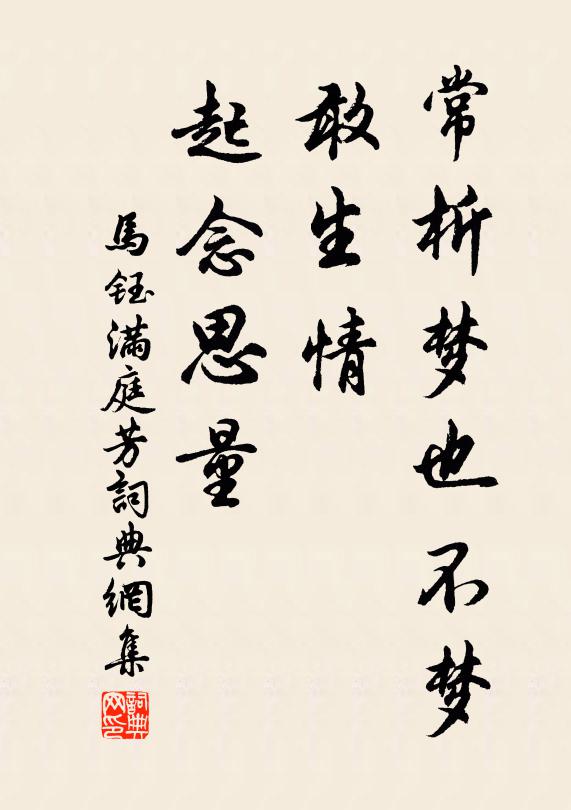 常析梦也不梦
敢生情
起念思量
馬鈺满庭芳詞典網集
詞典网印